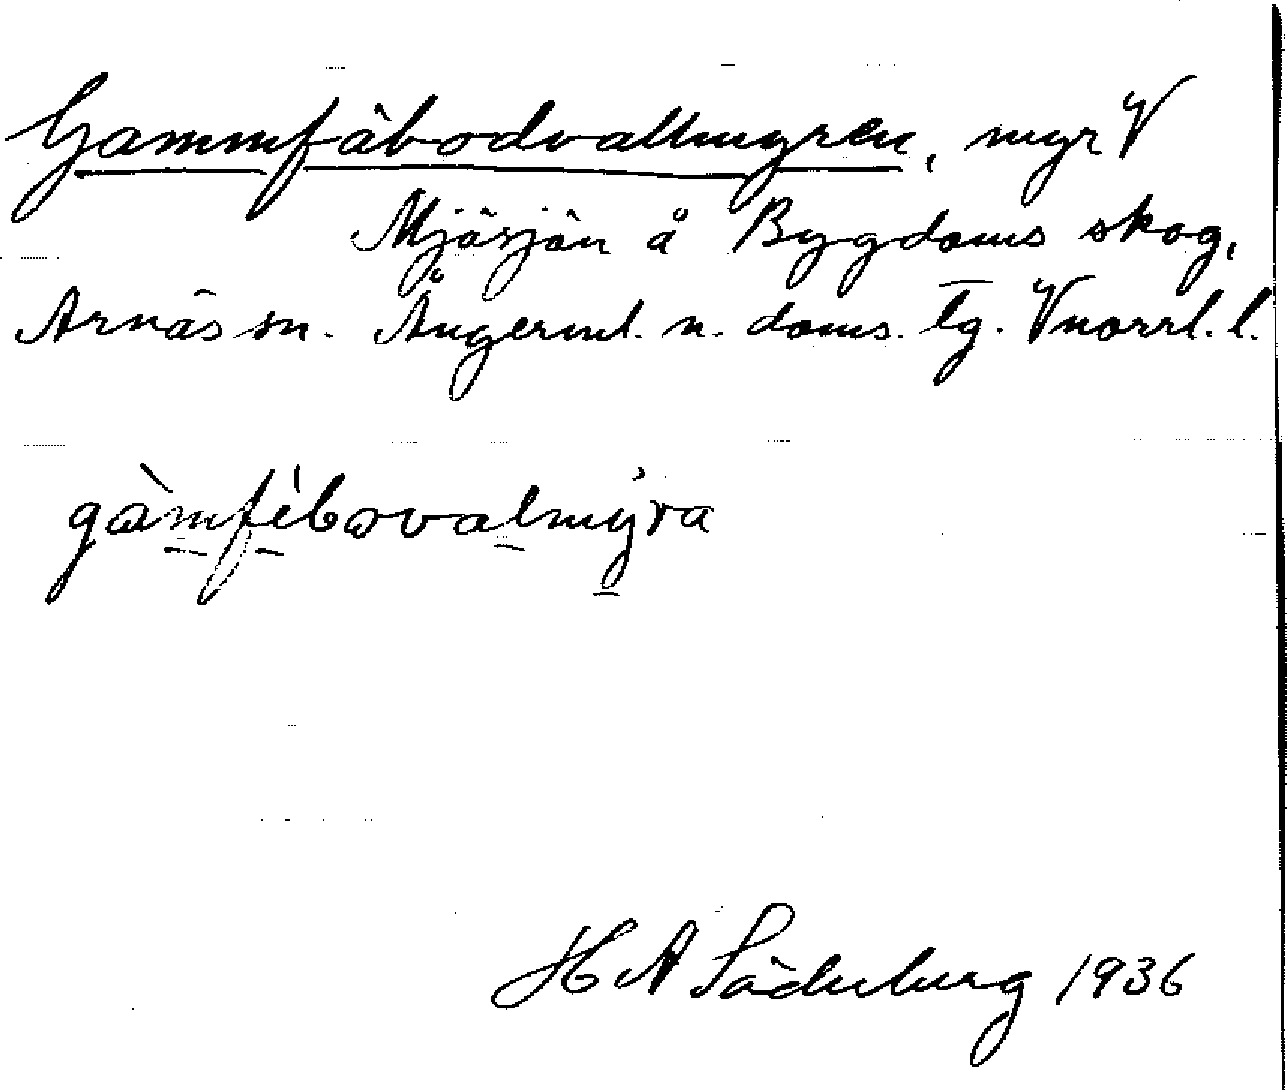 Gammfäbodvallmyren, myr V
Mjösjön å Bygdoms skog,
Arnäs sn. Ångerml. n. doms. tg. Vnorrl. l.
gàmfèbovalmýra
H A Söderberg 1936